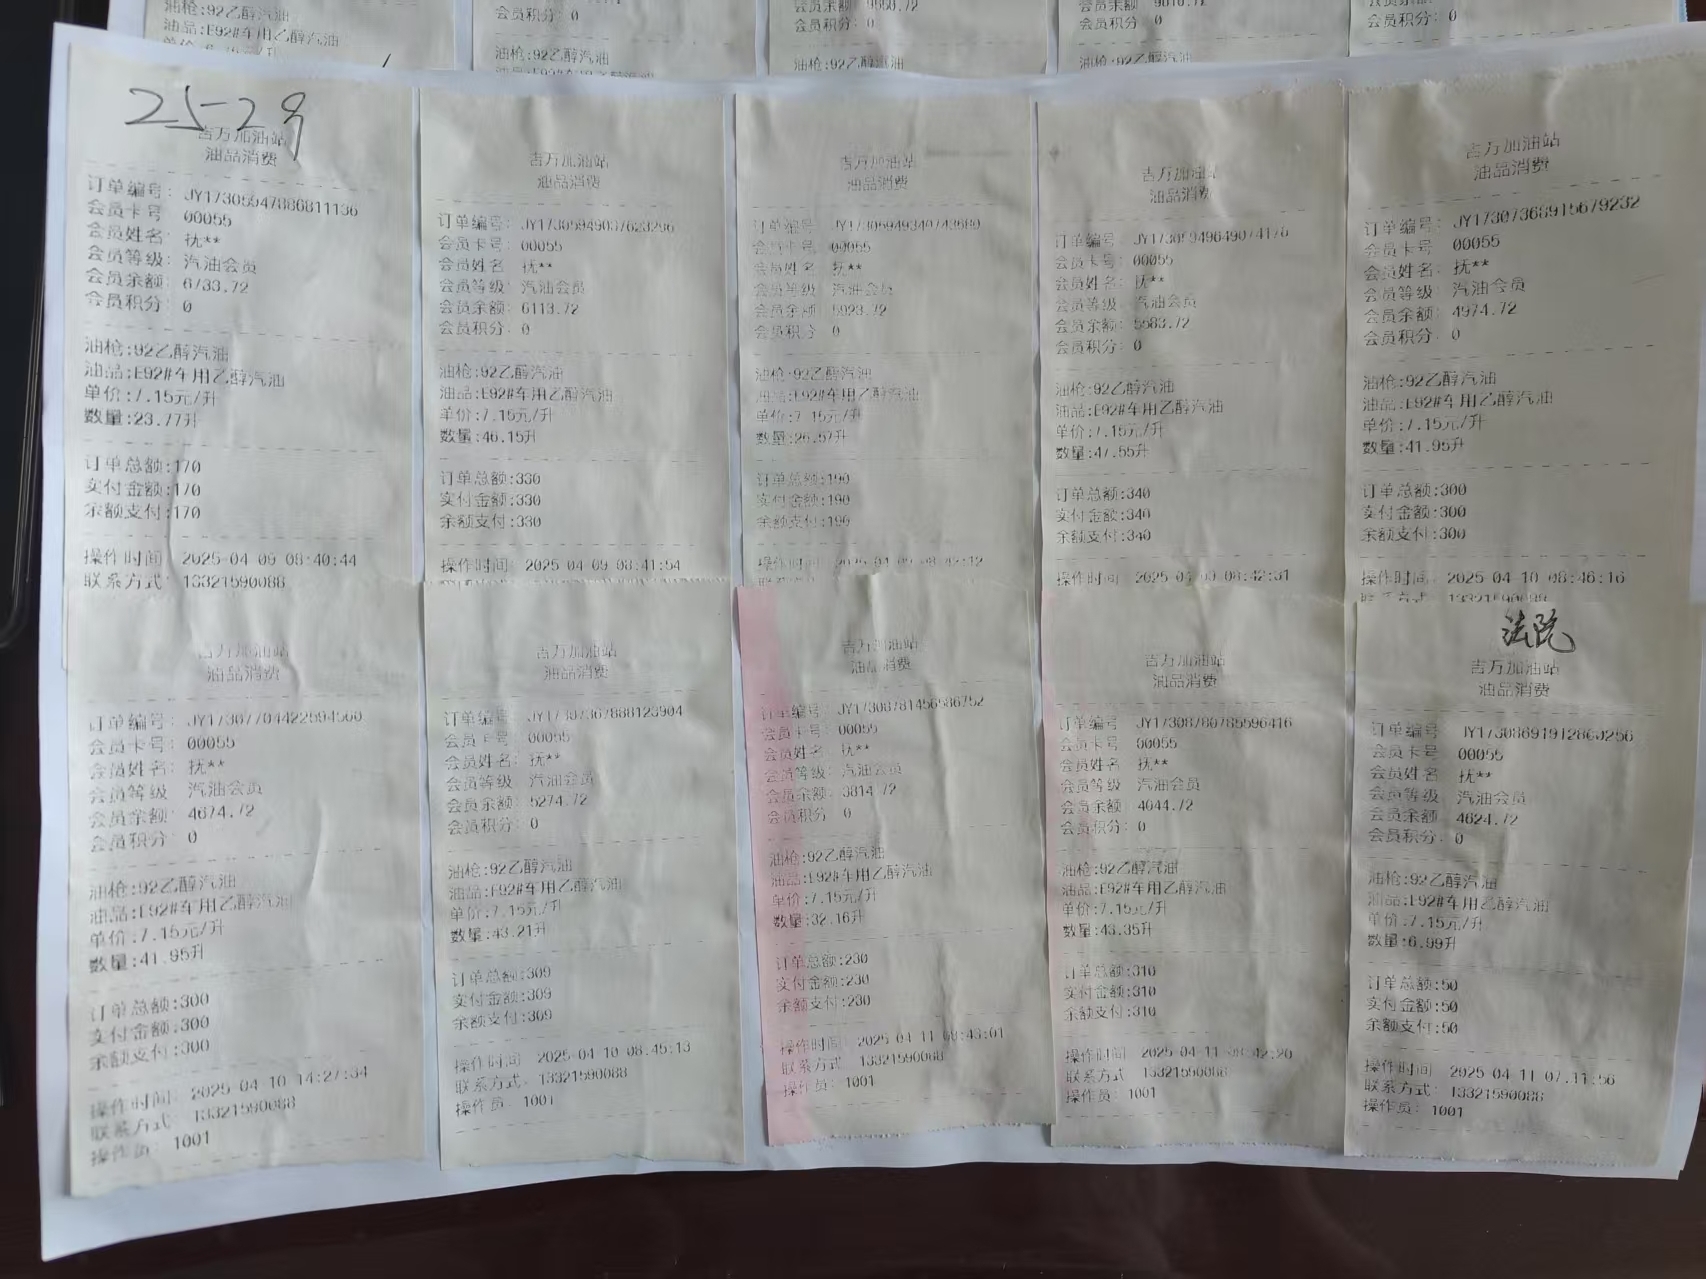 油枪:92乙醇汽油
油品:E92#车用乙醇汽油
会员积分: 0
油枪:92乙醇汽油
会员积分: 0
油枪:92乙醇汽油
会员积分 0
油枪:92乙醇汽油
会员积分 0
25-29
吉万加油站
油品消费
订单编号: JY17305947886811136
会员卡号: 00055
会员姓名: 抚**
会员等级: 汽油会员
会员余额: 6733.72
会员积分: 0
油枪:92乙醇汽油
油品:E92#车用乙醇汽油
单价:7.15元/升
数量:23.77升
订单总额:170
实付金额:170
余额支付:170
操作时间: 2025-04-09 08:40:44
联系方式: 13321590088
吉万加油站
油品消费
订单编号: JY17305949037623296
会员卡号: 00055
会员姓名 抚**
会员等级: 汽油会员
会员余额: 6113.72
会员积分: 0
油枪:92乙醇汽油
油品:E92#车用乙醇汽油
单价:7.15元/升
数量:46.15升
订单总额:330
实付金额:330
余额支付:330
操作时间: 2025-04-09 08:41:54
吉万加油站
油品消费
订单编号: JY17305949340743680
会员卡号: 00055
会员姓名 抚**
会员等级: 汽油会员
会员余额: 5923.72
会员积分 0
油枪:92乙醇汽油
油品:E92#车用乙醇汽油
单价:7.15元/升
数量:26.57升
订单总额:190
实付金额:190
余额支付:190
操作时间: 2025-04-09 08:42:12
吉万加油站
油品消费
订单编号: JY17305949649074176
会员卡号: 00055
会员姓名: 抚**
会员等级: 汽油会员
会员余额: 5583.72
会员积分: 0
油枪:92乙醇汽油
油品:E92#车用乙醇汽油
单价:7.15元/升
数量:47.55升
订单总额:340
实付金额:340
余额支付:340
操作时间 2025-04-09 08:42:31
吉万加油站
油品消费
订单编号: JY17307368915679232
会员卡号 00055
会员姓名: 抚**
会员等级 汽油会员
会员余额: 4974.72
会员积分: 0
油枪:92乙醇汽油
油品:E92#车用乙醇汽油
单价:7.15元/升
数量:41.95升
订单总额:300
实付金额:300
余额支付:300
操作时间: 2025-04-10 08:46:16
联系方式: 13321590088
吉万加油站
油品消费
订单编号: JY17307704422594560
会员卡号: 00055
会员姓名: 抚**
会员等级 汽油会员
会员余额: 4674.72
会员积分 0
油枪:92乙醇汽油
油品:E92#车用乙醇汽油
单价:7.15元/升
数量:41.95升
订单总额:300
实付金额:300
余额支付:300
操作时间: 2025-04-10 14:27:34
联系方式: 13321590088
操作员: 1001
吉万加油站
油品消费
订单编号: JY17307367888123904
会员卡号: 00055
会员姓名: 抚**
会员等级: 汽油会员
会员余额: 5274.72
会员积分: 0
油枪:92乙醇汽油
油品:E92#车用乙醇汽油
单价:7.15元/升
数量:43.21升
订单总额:309
实付金额:309
余额支付:309
操作时间 2025-04-10 08:45:13
联系方式: 13321590088
操作员 1001
吉万加油站
油品消费
订单编号: JY17308781456586752
会员卡号: 00055
会员姓名: 抚**
会员等级: 汽油会员
会员余额: 3814.72
会员积分 0
油枪:92乙醇汽油
油品:E92#车用乙醇汽油
单价:7.15元/升
数量:32.16升
订单总额:230
实付金额:230
余额支付:230
操作时间: 2025-04-11 08:43:01
联系方式 13321590088
操作员: 1001
吉万加油站
油品消费
订单编号 JY17308780785596416
会员卡号 00055
会员姓名: 抚**
会员等级 汽油会员
会员余额: 4044.72
会员积分: 0
油枪:92乙醇汽油
油品:E92#车用乙醇汽油
单价:7.15元/升
数量:43.35升
订单总额:310
实付金额:310
余额支付:310
操作时间 2025-04-11 08:42:20
联系方式 13321590088
操作员: 1001
法院
吉万加油站
油品消费
订单编号 JY17308691912860256
会员卡号 00055
会员姓名 抚**
会员等级 汽油会员
会员余额 4624.72
会员积分: 0
油枪:92乙醇汽油
油品:E92#车用乙醇汽油
单价:7.15元/升
数量:6.99升
订单总额:50
实付金额:50
余额支付:50
操作时间 2025-04-11 07:11:56
联系方式: 13321590088
操作员: 1001